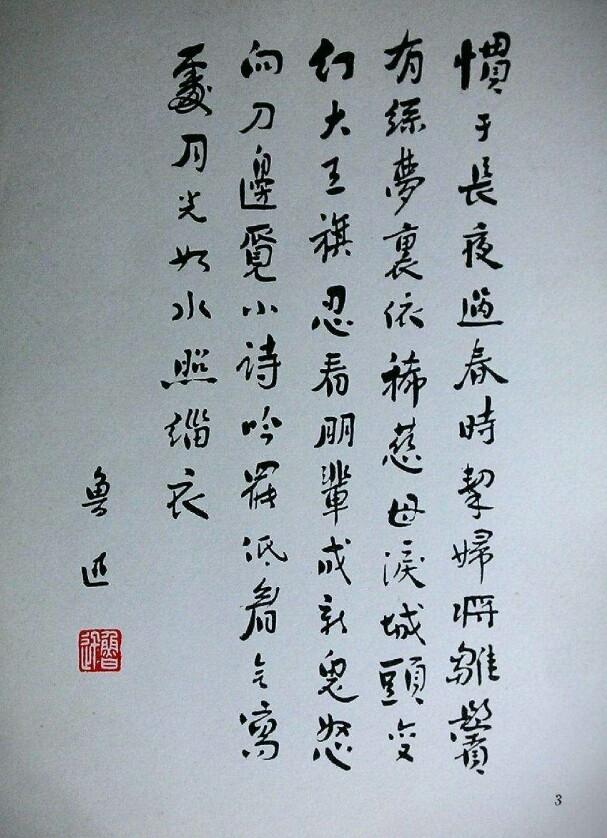 慣于長夜過春時挈婦將雛鬢
有絲夢裏依稀慈母淚城頭变
幻大王旗忍看朋輩成新鬼怒
向刀邊覓小詩吟罷低眉无寫
處月光如水照緇衣
魯迅
魯迅
3